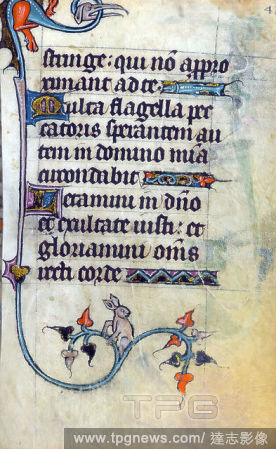 4
stringe: qui nō appro
ximant ad te:
Multa flagella pec
catoris sperantem au
tem in domino mīa
circondabit
Letamini in dn̄o
et exultate iusti: et
gloriamini om̄s
recti corde
TPG
www.tpgnews.com/達志影像